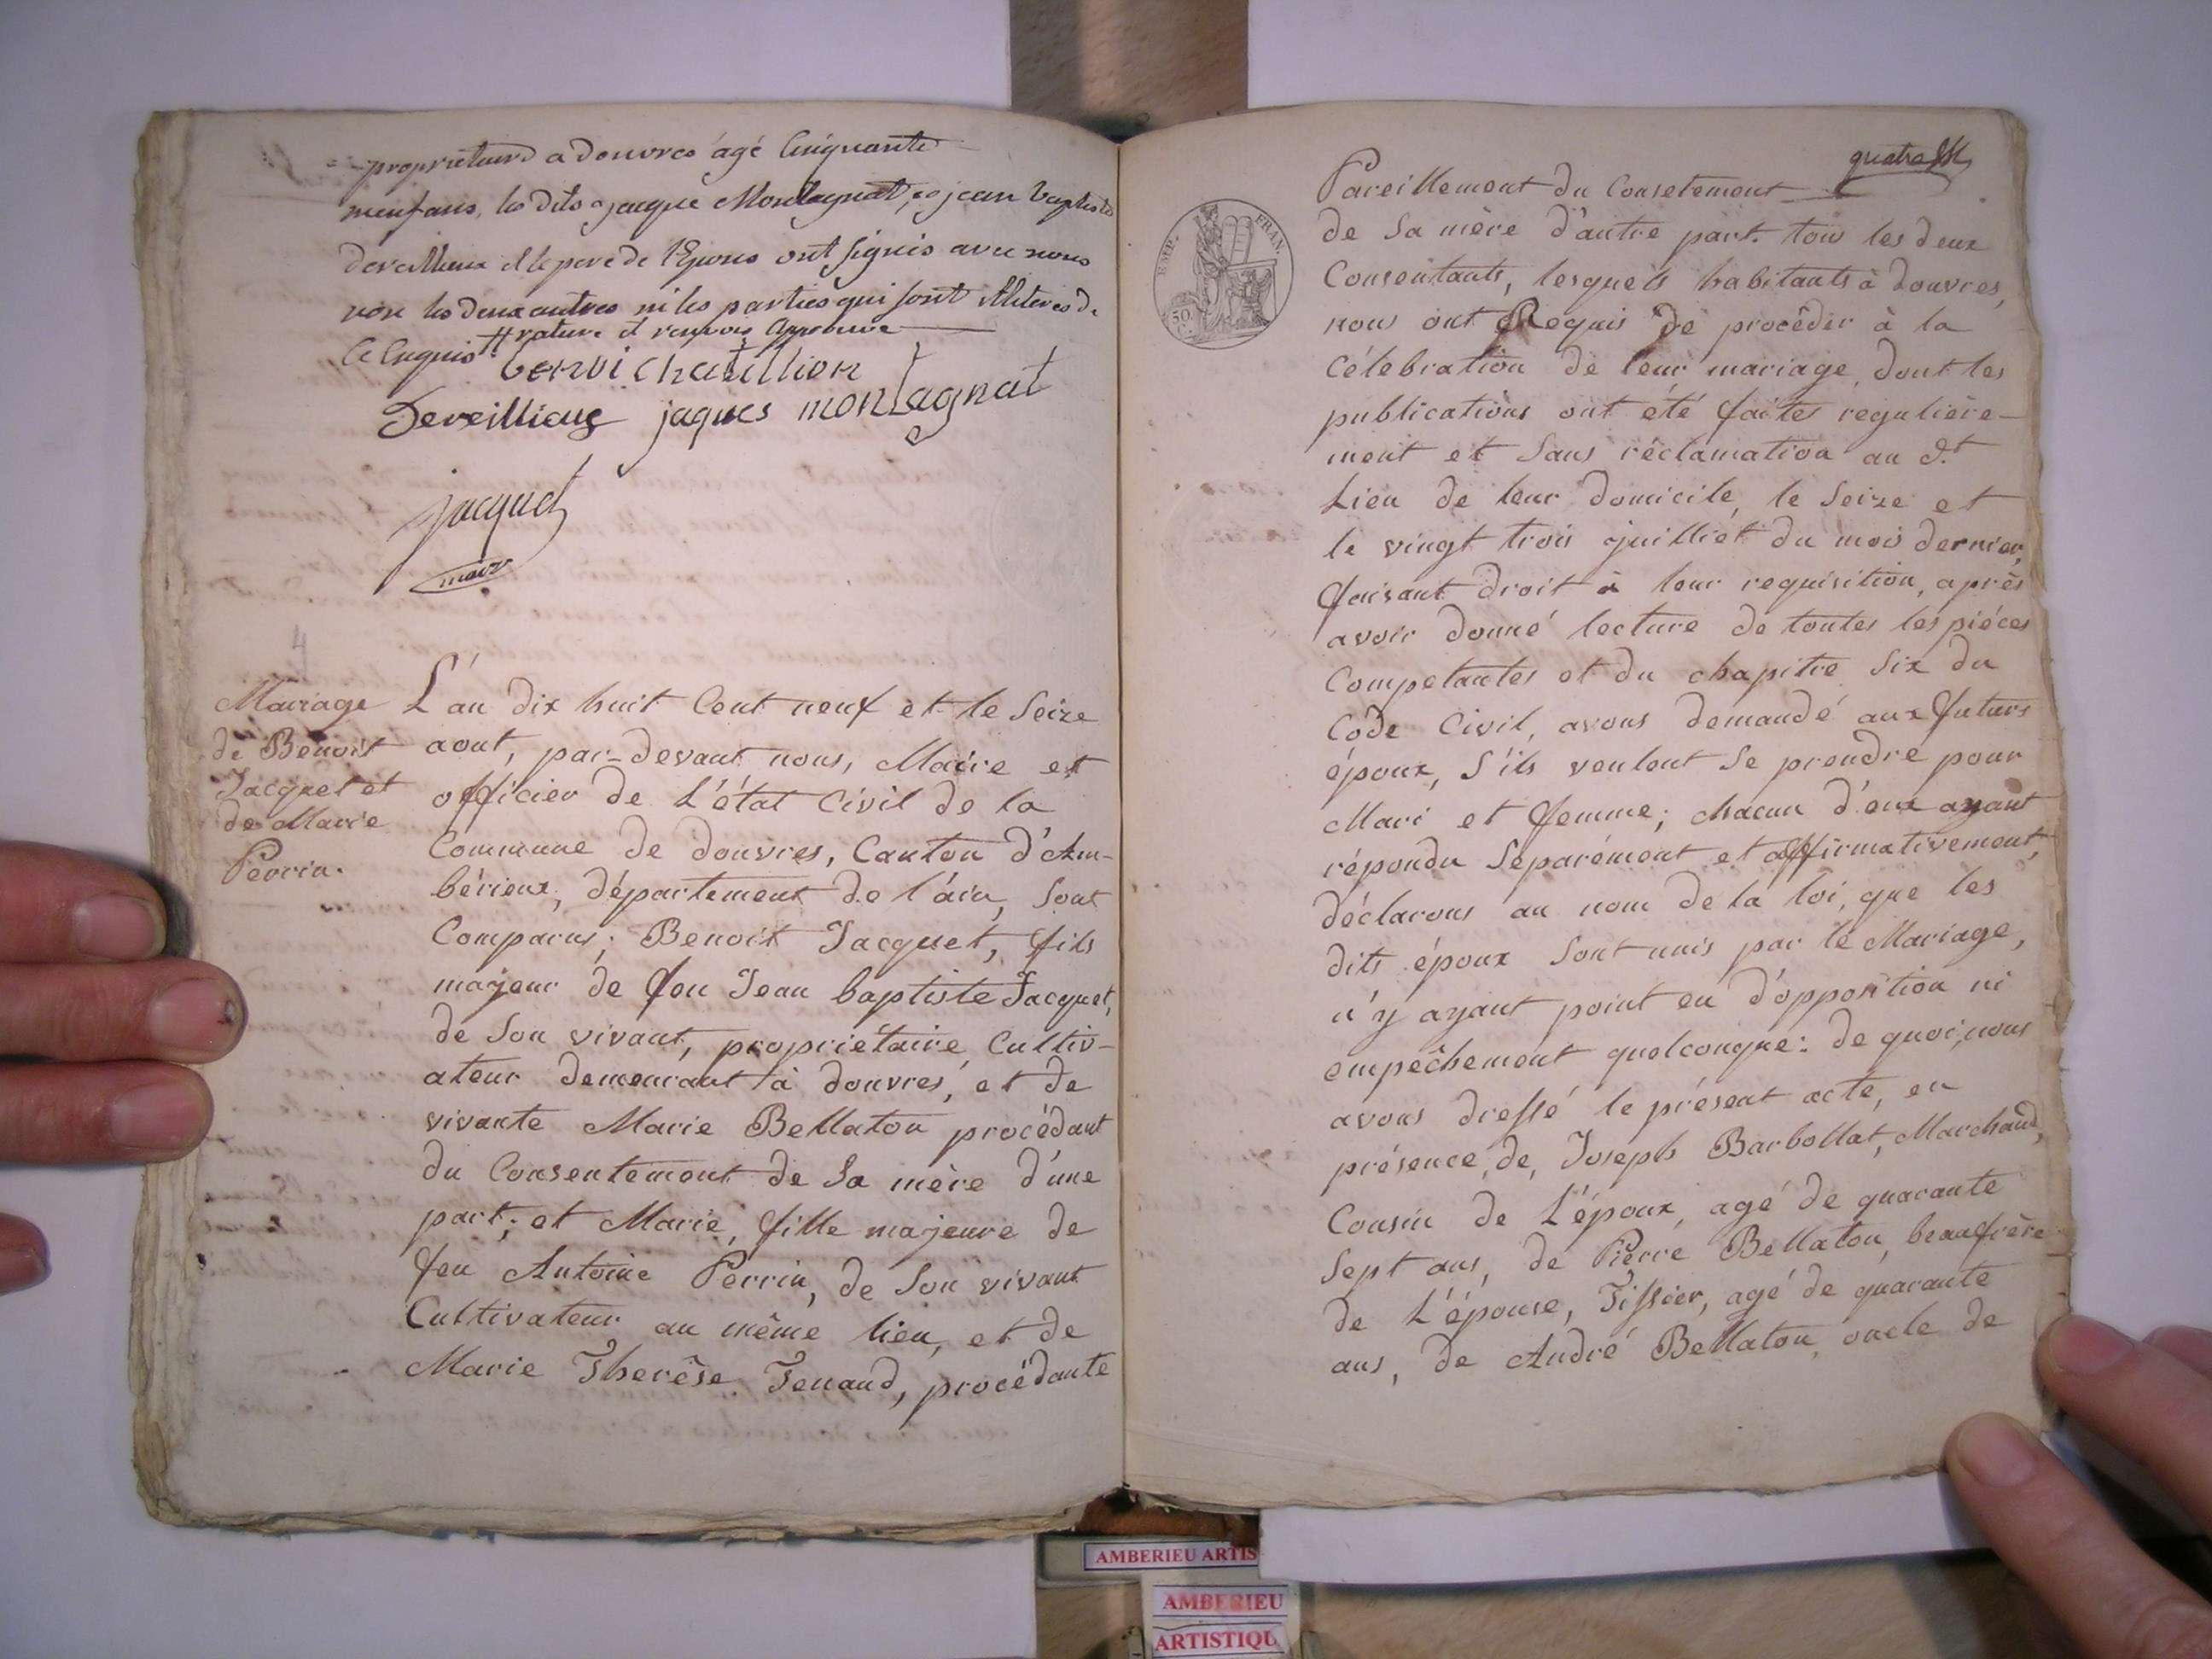 propriétaire a douvres âgé Cinquante
neuf ans, les dits jacque Montagnat, et jean baptiste
deveillieux et le pere de l'Epouse ont signés avec nous
non les deux autres ni les parties qui sont illiterés de
Ce Enquis # rature et renvois approuvé
benoi chatillion
Deveillieux jaques montagnat
jacquet
maire
4
Mariage
de Benoit
Jacquet et
de Marie
Perrin.
L'an dix huit Cent neuf et le Seize
aout, par-devant nous, Maire et
officier de L'état Civil de la
Commune de douvres, Canton d'Am-
bérieux, département de l'ain, Sont
Comparus; Benoit Jacquet, fils
majeur de feu Jean baptiste Jacquet,
de Son vivant, propriétaire Cultiv-
ateur demeurant à douvres, et de
vivante Marie Bellaton procédant
du Consentement de Sa mère d'une
part; et Marie, fille majeure de
feu Antoine Perrin, de Son vivant
Cultivateur au même lieu, et de
Marie Therêse Tenand, procédante
quatre
Pareillement du Consetement
de Sa mère d'autre part. tous les deux
Consentants, lesquels habitants à douvres,
nous ont Requis de procéder à la
Célébration de leur mariage, dont les
publications ont été faites regulière-
ment et Sans réclamation au dt
Lieu de leur domicile, le Seize et
le vingt trois juilliet du mois dernier,
faisant droit à leur requisition, après
avoir donné lecture de toutes les piéces
Competantes et du chapitre Six du
Code Civil, avons demandé aux futurs
époux, S'ils veulent Se prendre pour
Mari et femme; chacun d'eux ayant
répondu Séparément et affirmativement,
déclarons au nom de la loi, que les
dits époux Sont unis par le Mariage,
n'y ayant point eu d'opposition ni
empêchement quelconque: de quoi, nous
avons dressé le présent acte, en
présence, de, Joseph Barbollat, Marchand,
Cousin de L'époux, agé de quarante
Sept ans, de Pierre Bellaton, beaufrère
de L'épouse, Tissier, agé de quarante
ans, de André Bellaton, oncle de
EMP. FRAN.
50
AMBERIEU ARTIS
AMBERIEU
ARTISTIQU